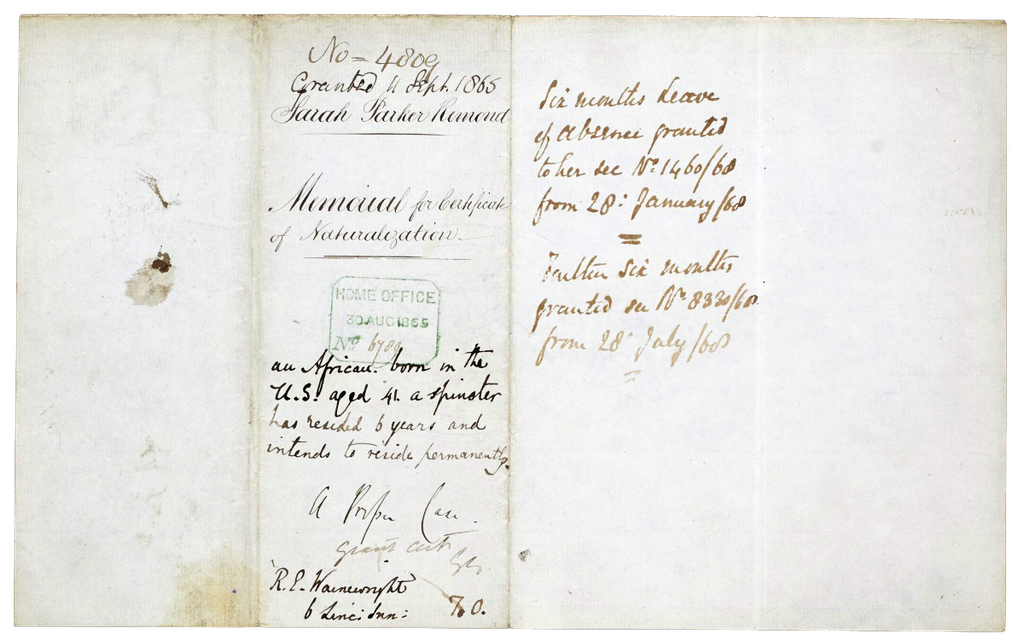 No = 4809
Granted 4 Sept. 1865
Sarah Parker Remond
Memorial for Certificate
of Naturalization
HOME OFFICE
30 AUG 1865
No 6789
an African. born in the
U.S. aged 41. a spinster
has resided 6 years and
intends to reside permanently.
A Proper Case.
grant cert
R.E. Wainewright
6 Lincs Inn:
Six months Leave
of Absence granted
to her see No. 1460/68
from 28: January/68
Further six months
granted see No. 8330/68
from 28: July/68